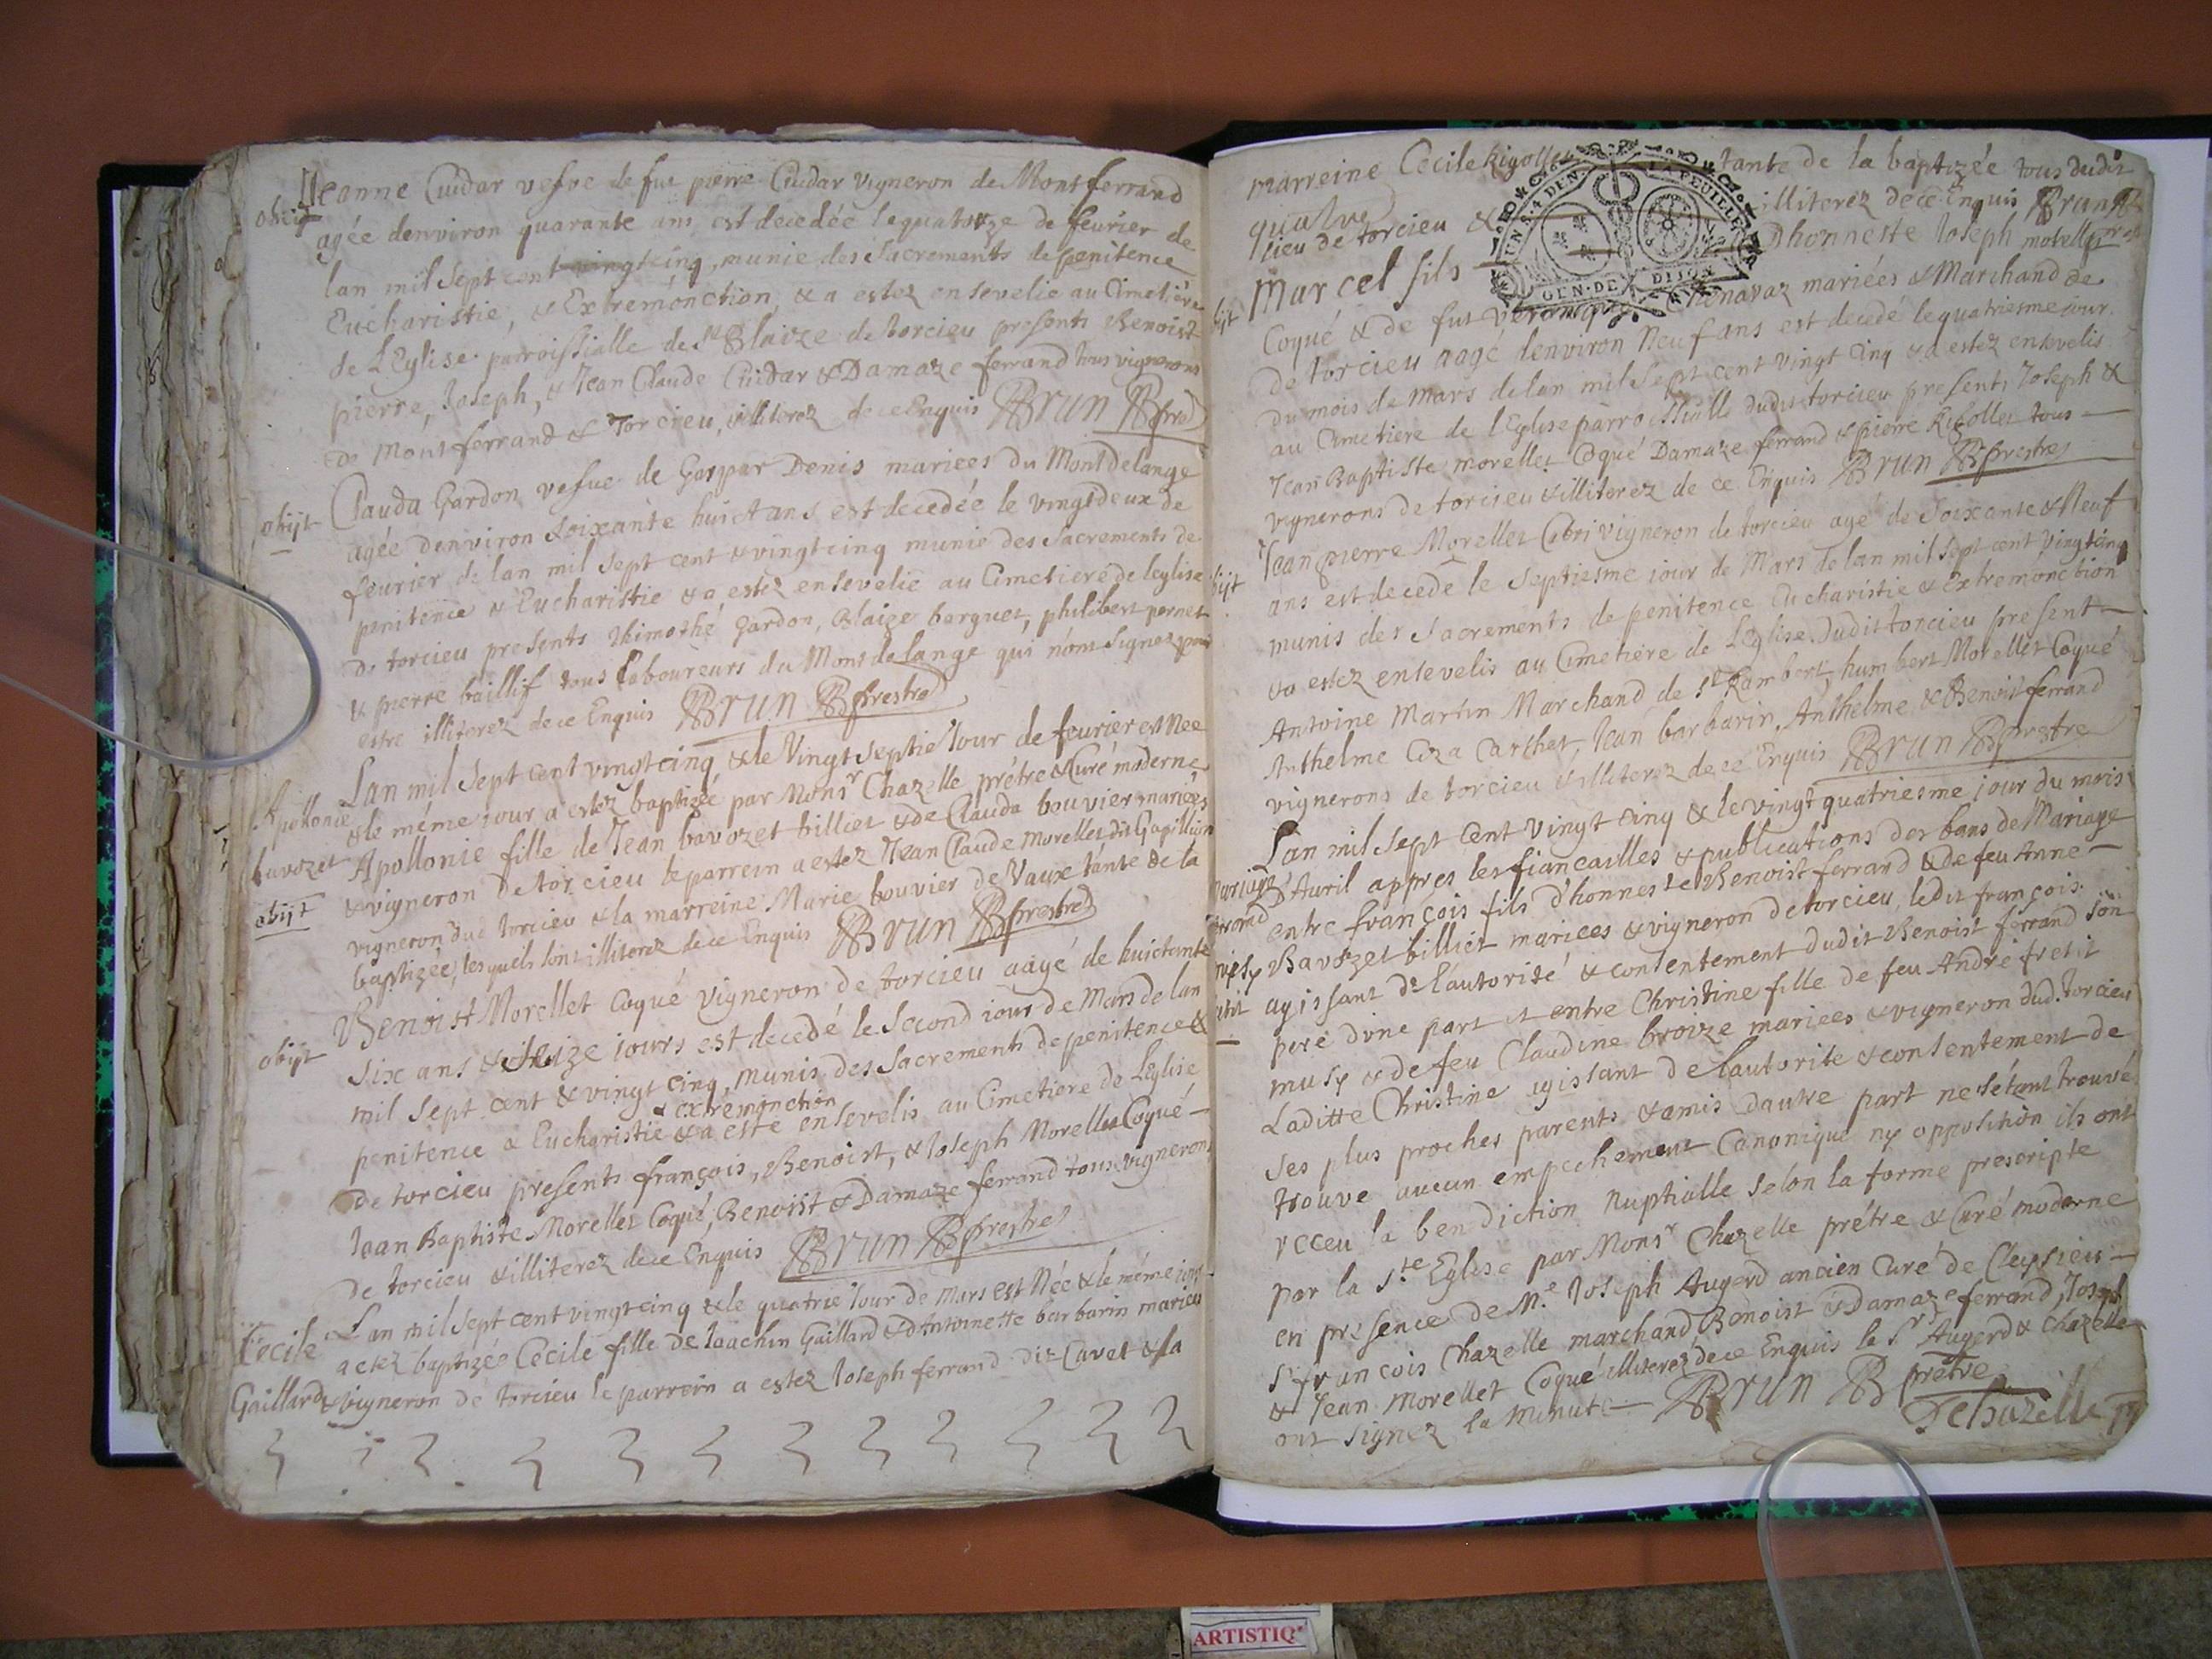 obijt
Jeanne Cuidar vefve de fut pierre Cuidar vigneron de Montferrand
agée denviron quarante ans est decedée le quatorze de feurier de
lan mil sept cent vingtcinq, munie des sacrements de penitence
Eucharistie, & Extremónction, & a estez ensevelie au Cimetiere
de L'Eglise parroissialle de St Blaize de torcieu presents Benoist
pierre, Joseph, & Jean Claude Cuidar & Damaze ferrand tous vignerons
de Montferrand & Torcieu, illiterez de ce Enquis Brun pbre
obijt
Clauda Gardon vefue de Gaspar Denis mariees du Montdelange
agée denviron soixante huict ans est decedée le vingtdeux de
feurier de lan mil sept cent & vingtcinq munie des Sacrements de
penitence & Eucharistie & a estez ensevelie au Cimetiere de leglise
de torcieu presents thimothé Gardon, Blaize barguet, philibert pernet
& pierre baillif tous laboureurs du Montdelange qui n'ont signez pour
estre illiterez de ce Enquis Brun prestre
Apollonie
bavozet
obijt
Lan mil sept cent vingtcinq & le Vingt septie Iour de feurier est Née
& le méme iour a estez baptizée par Monsr Chazelle prétre & Curé moderne
Apollonie fille de Jean bavozet billiet & de Clauda bouvier mariées
& vigneron de torcieu le parrein a estez Jean Claude Morellet dit Gapillion
vigneron dud torcieu & la marreine Marie bouvier de Vaux tante de la
baptizée, lesquels sont illiterez de ce Enquis Brun prestre
obijt
Benoist Morellet Coqué vigneron de torcieu aagé de huictante
six ans & seize iours est decedé le second iour de Mars de lan
mil sept cent & vingt cinq, munis des Sacrements de penitence &
& extremonction
penitence & Eucharistie & a esté ensevelis au Cimetiere de L'Eglise
de torcieu presents françois, Benoist, & Ioseph Morellet Coqué
Jean Baptiste Morellet Coqué, Benoist & Damaze ferrand tous vignerons
de torcieu & illiterez de ce Enquis Brun prestre
Cecile
Gaillard
Lan mil sept cent vingtcinq & le quatrie Iour de Mars est Née & le méme iour
a etez baptizée Cecile fille de Ioachin Gaillard & d'Antoinette barbarin mariees
& vigneron de torcieu le parrein a estez Ioseph ferrand dit Cavet & la
marreine Cecile Rigollet tante de la baptizée tous dudit
lieu de torcieu & illiterez de ce Enquis Brun
UN S. 4 DEN. LA FEUILLE
GEN. DE DIJON
Marcel fils Dhonneste Ioseph morellet
Coqué & de fut mariées & Marchand de
de torcieu aagé denviron Neuf ans est decedé le quatriesme iour
du mois de Mars de lan mil sept cent vingt cinq & a estez ensevelis
au Cimetiere de l'Eglise parroissialle dudit torcieu presents Ioseph &
Jean Baptiste morellet Coqué Damaze ferrand & pierre Rigollet tous
vignerons de torcieu & illiterez de ce Enquis Brun prestre
Jean pierre Morellet vigneron de torcieu agé de soixante & Neuf
ans est decedé le Septiesme iour de Mars de lan mil sept cent vingtcinq
munis des Sacrements de penitence Eucharistie & Extremónction
& a estez ensevelis au Cimetiere de L'Eglise dudit torcieu present
Antoine Martin Marchand de St Rambert humbert Morellet Coqué
Anthelme Coza Carthet, Jean barbarin, Anthelme & Benoist ferrand
vignerons de torcieu & illiterez de ce Enquis Brun prestre
Lan mil sept cent vingt cinq & le vingt quatriesme iour du mois
D'Auril appres les fiancailles & publications des bans de Mariage
entre françois fils d'honneste Benoist ferrand & de feu Anne
Bavozet billiet mariees & vigneron de torcieu, ledit françois
agissant de l'autorité & contentement dudit Benoist ferrand son
pere d'une part et entre Christine fille de feu André fretit
musy & de feu Claudine broize mariees & vigneron dud. torcieu
Laditte Christine agissant de l'autorité & contentement de
ses plus proches parents & amis dautre part ne s'étant trouvé
trouve aucun empechement Canonique ny opposition ils ont
receu la benediction Nuptialle selon la forme prescripte
par la Ste Eglise par Monsr Chazelle prétre & Curé moderne
en presence de Me Ioseph Augerd ancien Curé de Cleysieu
Sr françois Chazelle marchand Benoist & Damaze ferrand, Joseph
& Jean Morellet Coqué illiterez de ce Enquis le Sr Augerd & Chazelle
ont signez la Minute Brun prétre
Dechazelle
ARTISTIQ